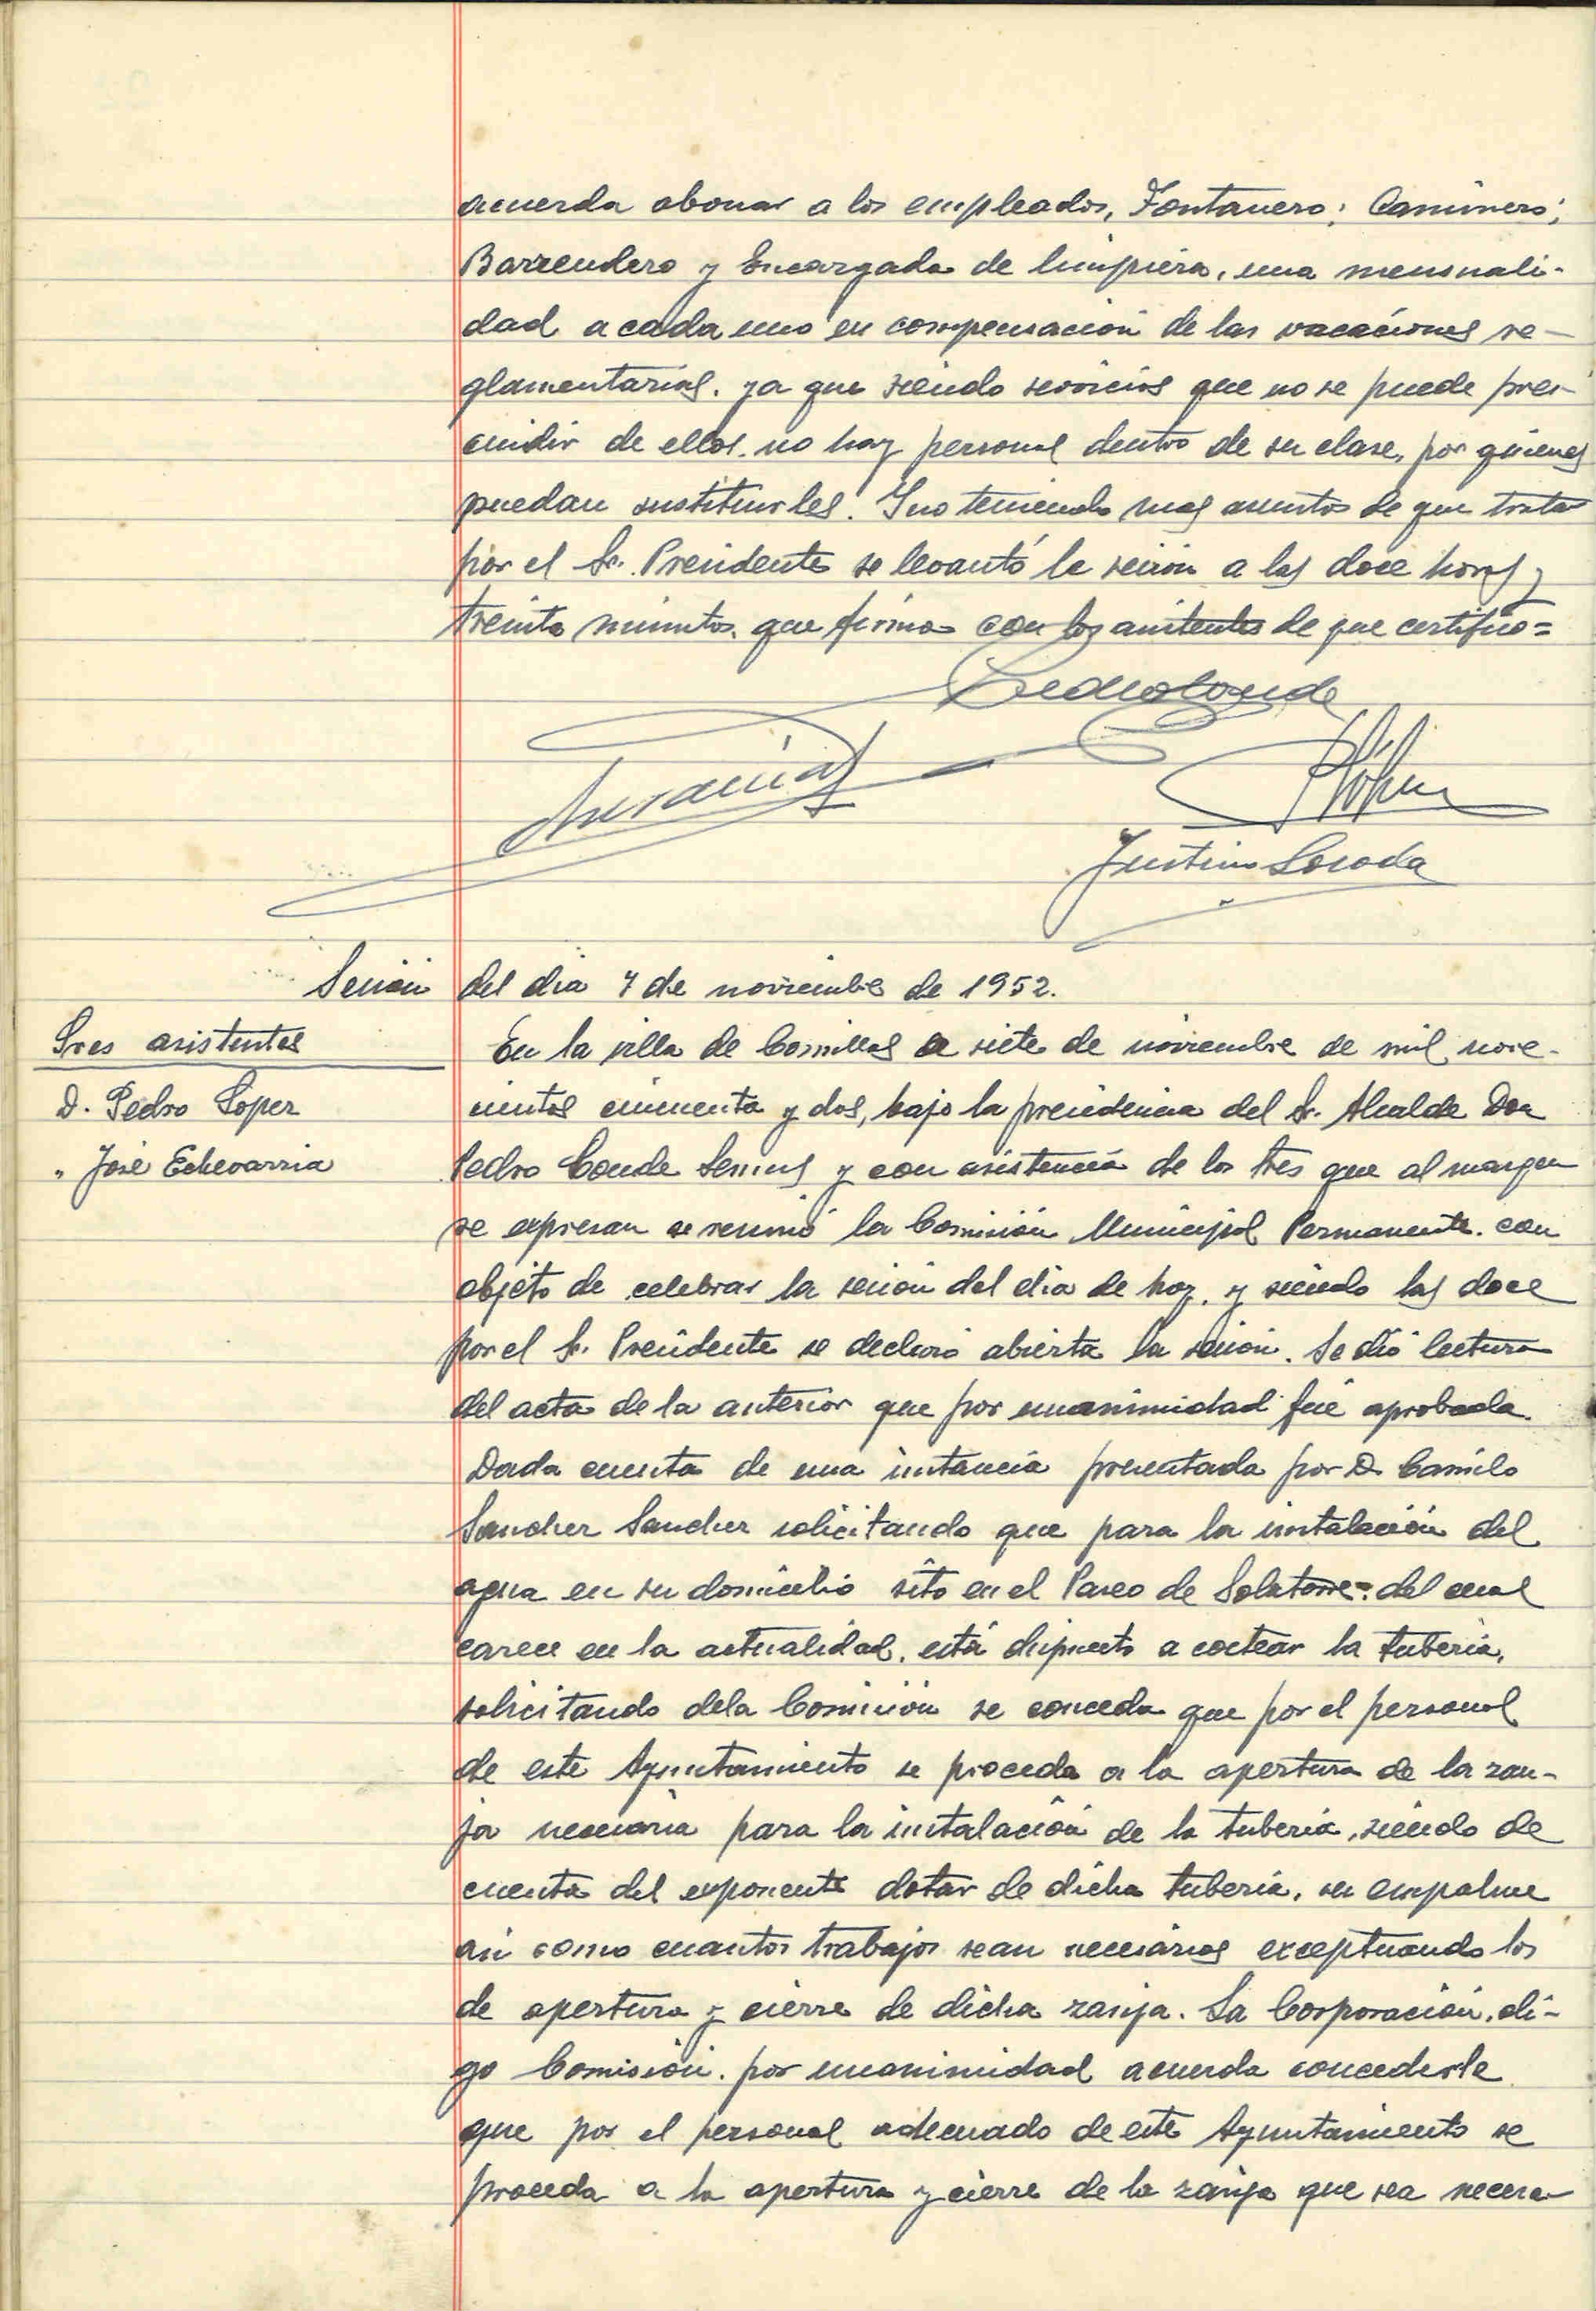 acuerda abonar a los empleados, Fontanero; Caminero;
Barrendero y Encargada de limpieza, una mensuali-
dad a cada uno en compensación de las vacaciones re-
glamentarias, ya que siendo servicios que no se puede pres-
cindir de ellos, no hay personal dentro de su clase, por quienes
puedan sustituirles. Y no teniendo mas asuntos de que tratar
por el Sr. Presidente se levantó la sesión a las doce horas y
treinta minutos, que firma con los asistentes de que certifico=
Pedro Conde
Justino Losada
Sesión del dia 7 de noviembre de 1952.
Sres asistentes
D. Pedro López
" José Echevarria
En la villa de Comillas a siete de noviembre de mil nove-
cientos cincuenta y dos, bajo la presidencia del Sr. Alcalde Don
Pedro Conde y con asistencia de los Sres que al margen
se expresan se reunió la Comisión Municipal Permanente, con
objeto de celebrar la sesión del dia de hoy, y siendo las doce
por el Sr. Presidente se declaró abierta la sesión. Se dió lectura
del acta de la anterior que por unanimidad fué aprobada.
Dada cuenta de una instancia presentada por D. Camilo
Sanchez Sanchez solicitando que para la instalación del
agua en su domicilio sito en el Paseo de Solatorre, del cual
carece en la actualidad, está dispuesto a costear la tuberia,
solicitando dela Comisión se conceda que por el personal
de este Ayuntamiento se proceda a la apertura de la zan-
ja necesaria para la instalación de la tuberia, siendo de
cuenta del exponente dotar de dicha tuberia, su empalme
asi como cuantos trabajos sean necesarios exceptuando los
de apertura y cierre de dicha zanja. La Corporación, di-
go Comisión, por unanimidad acuerda concederle
que por el personal adecuado de este Ayuntamiento se
proceda a la apertura y cierre de la zanja que sea necesa-